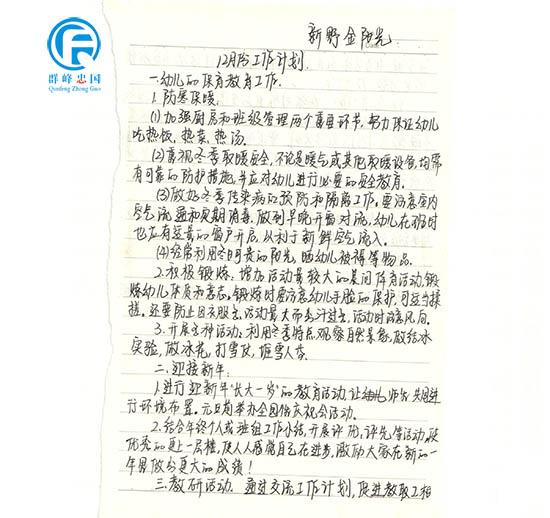 群峰忠国
Qunfeng Zhong Guo
新野金阳光
12月份工作计划
一.幼儿的保育教育工作.
1.防寒保暖.
(1)加强厨房和班级管理两个重要环节,努力保证幼儿
吃热饭、热菜、热汤.
(2)重视冬季取暖安全,不论是暖气或其他取暖设备,均需
有可靠的防护措施,并应对幼儿进行必要的安全教育.
(3)做好冬季传染病的预防和隔离工作,要注意室内
空气流通和定期消毒.做到早晚开窗对流,幼儿在班时
也应有适量的窗户开启,以利于新鲜空气流入.
(4)经常利用冬日可贵的阳光,晒幼儿被褥等物品.
2.积极锻炼.增加活动量较大的晨间体育活动,锻
炼幼儿体质和意志,锻炼时要注意幼儿手脸的保护,可适当揉
搓.还要防止因衣服多、活动量大而多汗过多,活动时注意风向.
3.开展多种活动:利用冬季特点观察自然景象,做结冰
实验,做冰花,打雪仗,堆雪人等.
二.迎接新年:
1.进行迎新年"长大一岁"的教育活动,让幼儿师生共同进
行环境布置.元旦前举办全园性庆祝会活动.
2.结合年终个人或班组工作小结,开展评比,评先等活动,使
优秀的更上一层楼,使人人感觉自己在进步,激励大家在新的一
年里做出更大的成绩!
三.教研活动.通过交流工作计划,促进教职工相